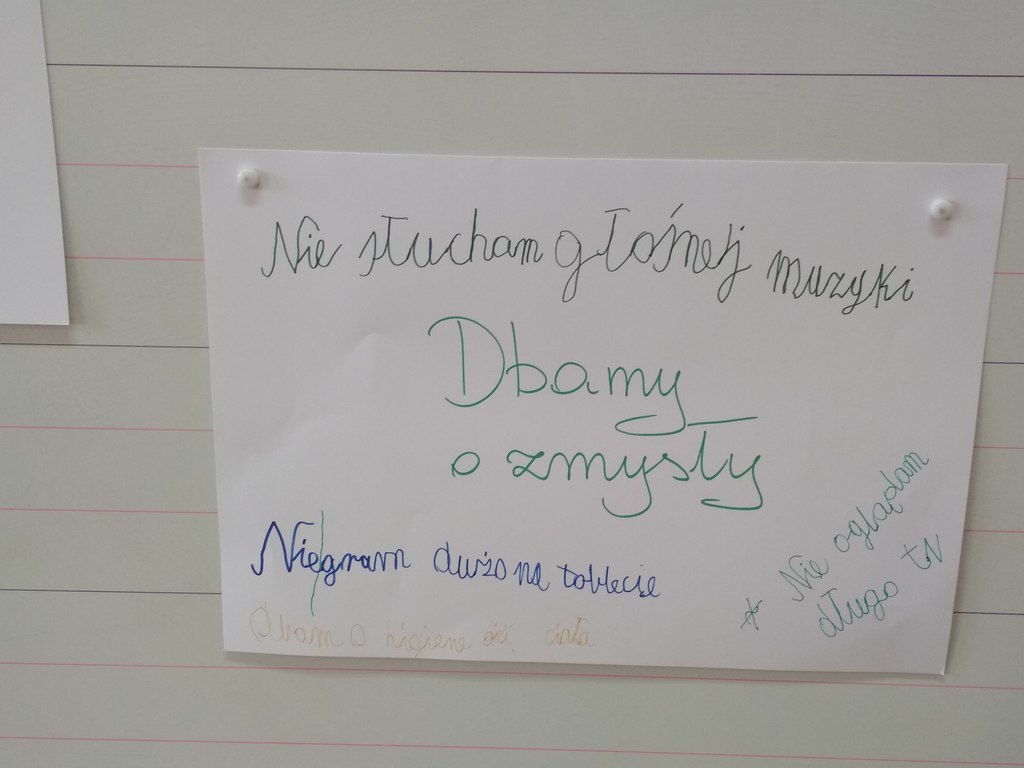 Nie słucham głośnej muzyki
Dbamy
o zmysły
Nie gram dużo na tablecie
Nie oglądam
długo tv
Dbam o higiene ciała